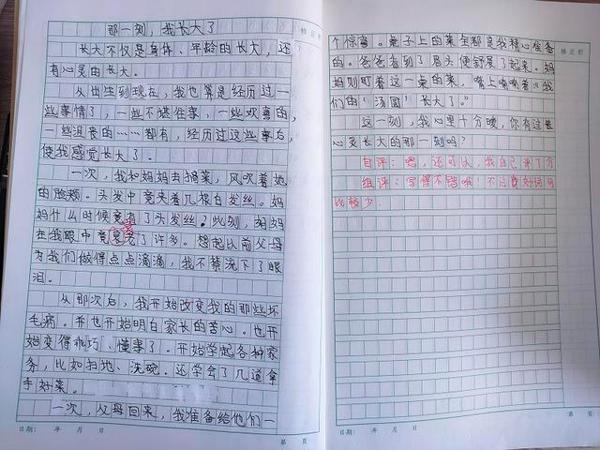 那一刻，我长大了
长大不仅是身体、年龄的长大，还
有心灵的长大。
从出生到现在，我也算是经历过一
些事情了，一些不堪往事，一些欢喜的，
一些沮丧的……都有，经历过这些事后，
使我感觉长大了。
一次，我和妈妈去摘菜，风吹着她
的脸颊。头发中竟夹着几根白发丝。妈
妈什么时候竟有了头发丝？此刻，妈妈
在我眼中竟老了许多。想起以前父母
为我们做得点点滴滴，我不禁流下了眼
泪。
从那次后，我开始改变我的那些坏
毛病。并也开始明白家长的苦心。也开
始变得乖巧、懂事了。开始学起各种家
务，比如扫地、洗碗。还学会了几道拿
手好菜。
一次，父母回来，我准备给他们一
个惊喜。桌子上的菜全都是我精心准备
的。爸爸看到了，眉头便舒展了起来。妈
妈则盯着这一桌的菜，嘴上喃喃着：我
们的"汤圆"长大了。
这一刻，我心里十分暖，你有过
心灵长大的那一刻吗？
自评：嗯，还可以，我自己来了
组评：写得不错哦！不过好词
比较少。
日期： 年 月 日
第 页
日期： 年 月 日
第 页